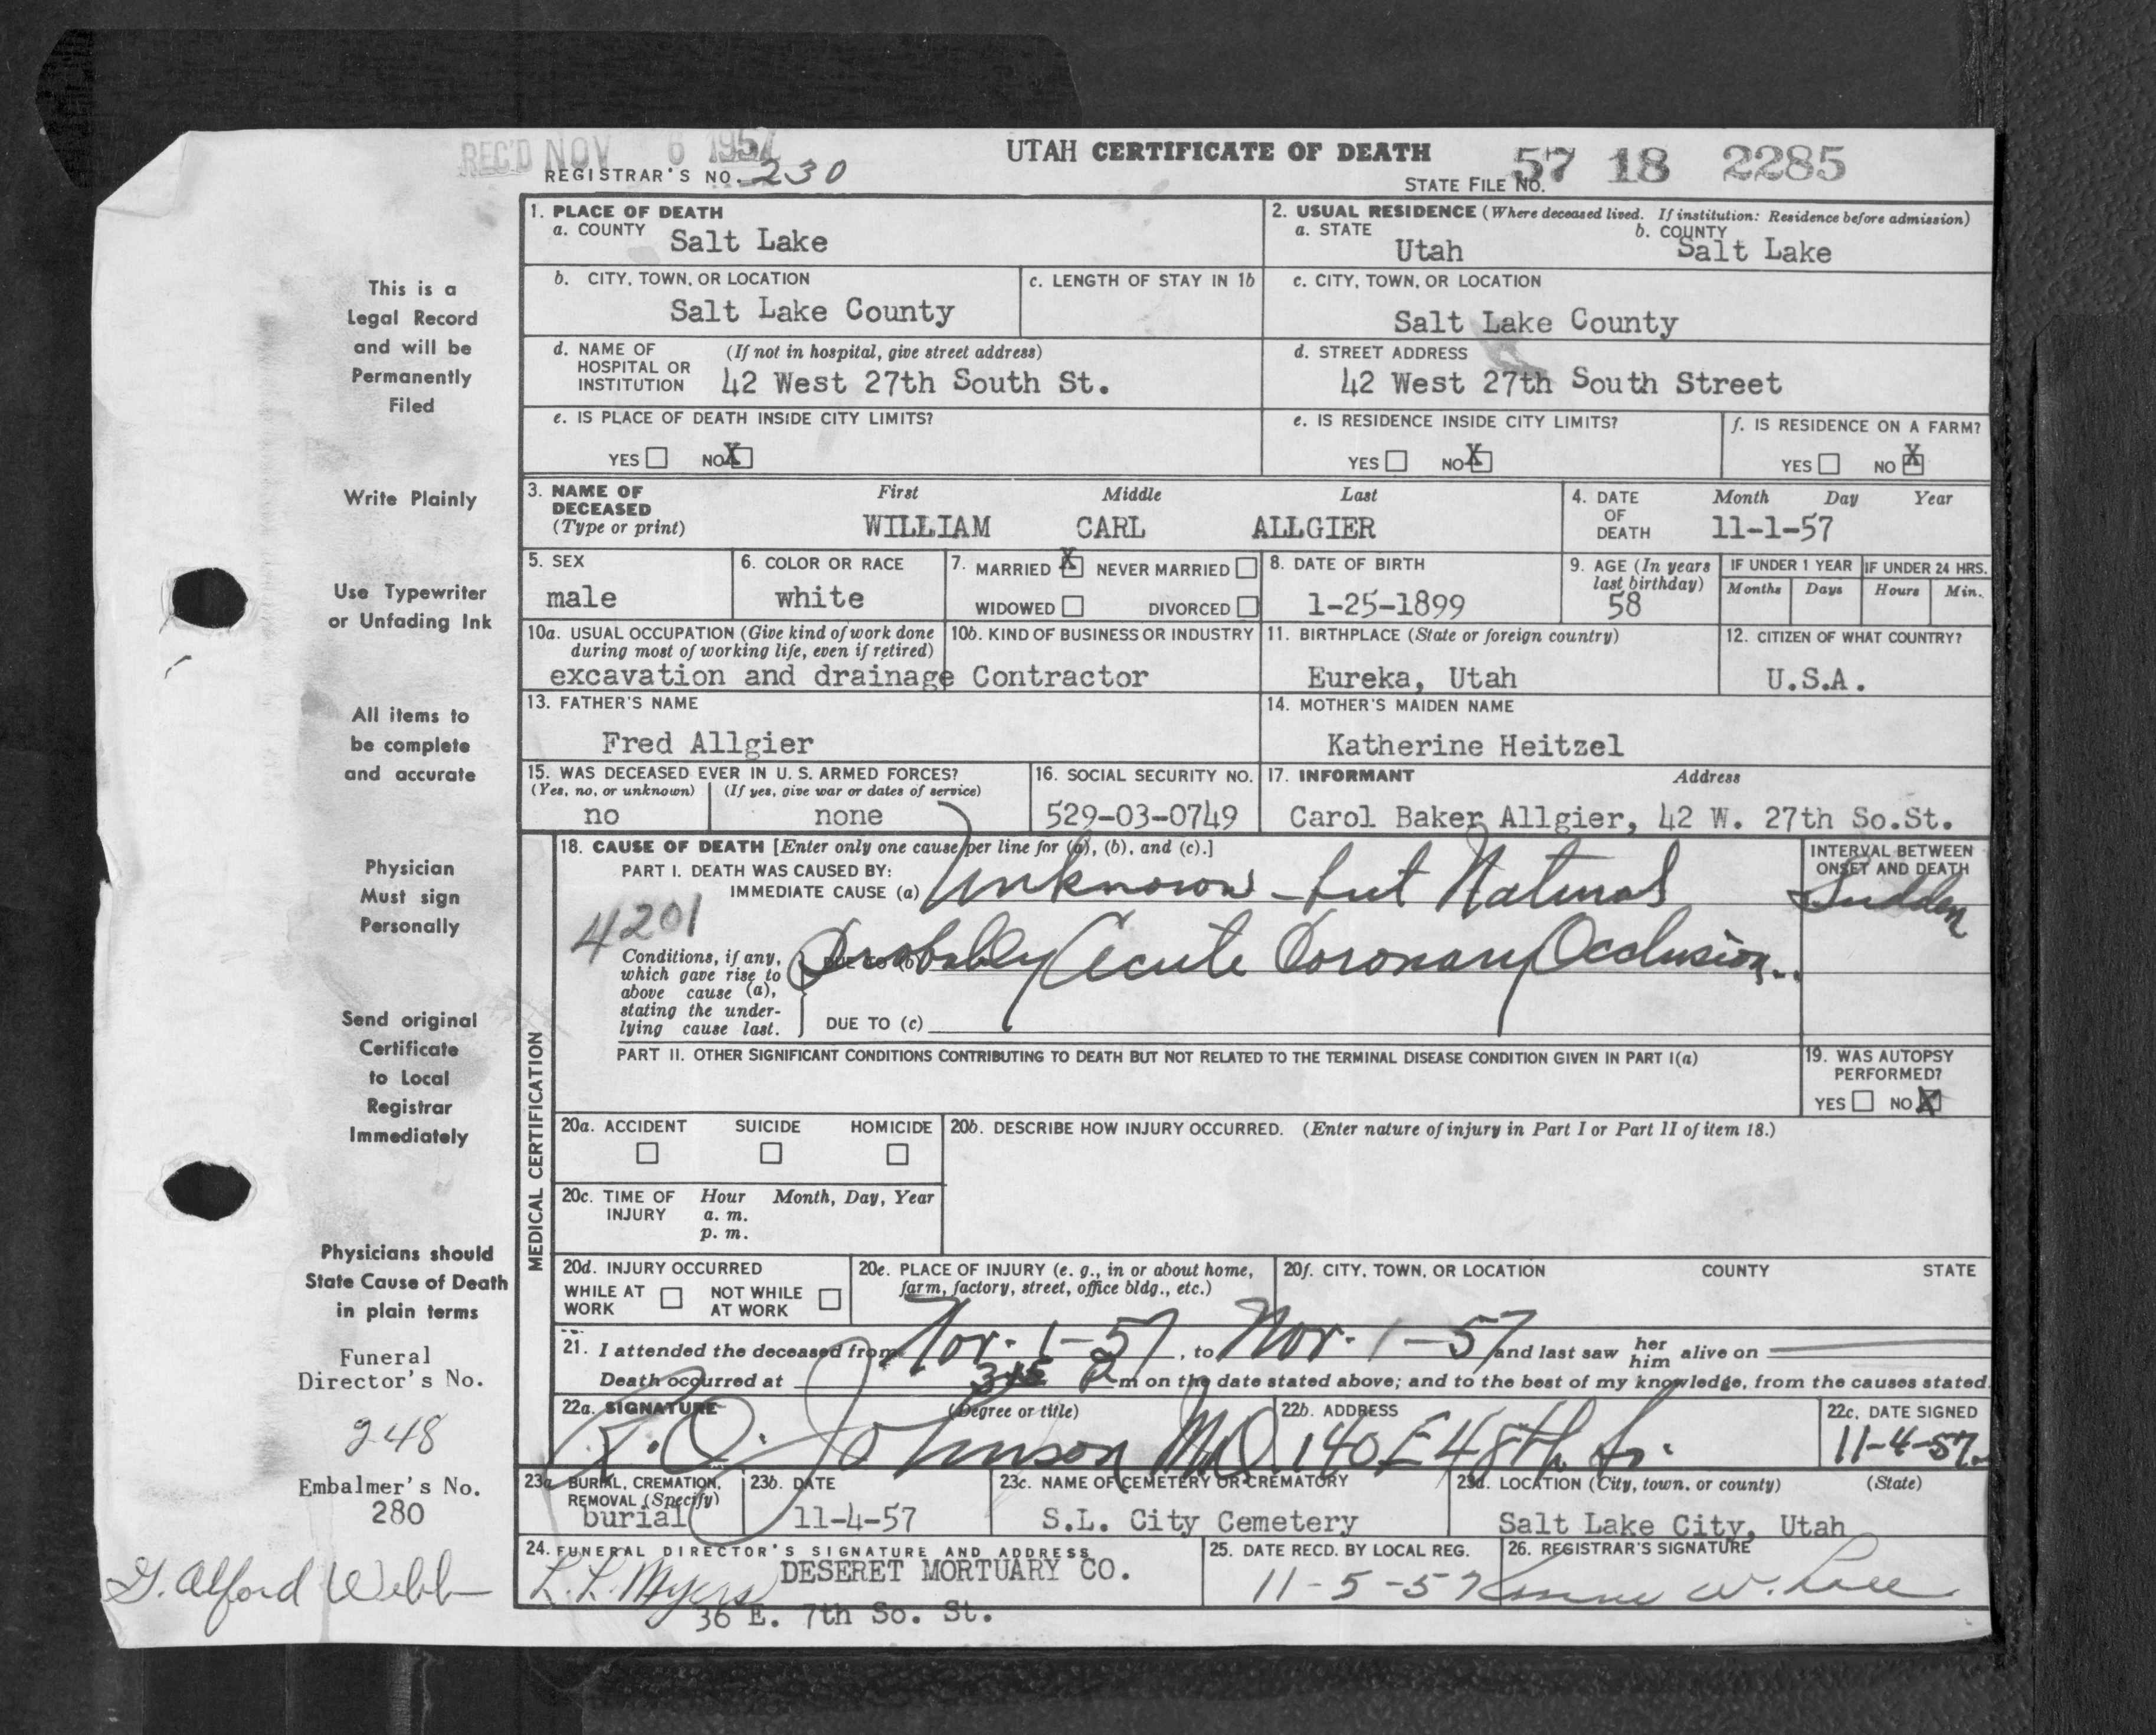 REC'D NOV 6 1957
UTAH CERTIFICATE OF DEATH
REGISTRAR'S NO. 230
STATE FILE NO. 57 18 2285
1. PLACE OF DEATH
a. COUNTY Salt Lake
2. USUAL RESIDENCE (Where deceased lived. If institution: Residence before admission)
a. STATE Utah b. COUNTY Salt Lake
b. CITY, TOWN, OR LOCATION Salt Lake County
c. LENGTH OF STAY IN 1b
c. CITY, TOWN, OR LOCATION Salt Lake County
d. NAME OF HOSPITAL OR INSTITUTION (If not in hospital, give street address) 42 West 27th South St.
d. STREET ADDRESS 42 West 27th South Street
e. IS PLACE OF DEATH INSIDE CITY LIMITS?
YES NO X
e. IS RESIDENCE INSIDE CITY LIMITS?
YES NO X
f. IS RESIDENCE ON A FARM?
YES NO X
3. NAME OF DECEASED (Type or print)
First Middle Last
WILLIAM CARL ALLGIER
4. DATE OF DEATH Month Day Year
11-1-57
5. SEX male
6. COLOR OR RACE white
7. MARRIED X NEVER MARRIED
WIDOWED DIVORCED
8. DATE OF BIRTH 1-25-1899
9. AGE (In years last birthday) 58
IF UNDER 1 YEAR Months Days
IF UNDER 24 HRS. Hours Min.
10a. USUAL OCCUPATION (Give kind of work done during most of working life, even if retired)
10b. KIND OF BUSINESS OR INDUSTRY
excavation and drainage Contractor
11. BIRTHPLACE (State or foreign country) Eureka, Utah
12. CITIZEN OF WHAT COUNTRY? U.S.A.
13. FATHER'S NAME Fred Allgier
14. MOTHER'S MAIDEN NAME Katherine Heitzel
15. WAS DECEASED EVER IN U. S. ARMED FORCES?
(Yes, no, or unknown) (If yes, give war or dates of service)
no none
16. SOCIAL SECURITY NO. 529-03-0749
17. INFORMANT Address
Carol Baker Allgier, 42 W. 27th So.St.
MEDICAL CERTIFICATION
18. CAUSE OF DEATH [Enter only one cause per line for (a), (b), and (c).]
PART I. DEATH WAS CAUSED BY:
IMMEDIATE CAUSE (a) Unknown - but Natural
INTERVAL BETWEEN ONSET AND DEATH
Sudden
4201
Conditions, if any, which gave rise to above cause (a), stating the underlying cause last.
DUE TO (b) Probably Acute Coronary Occlusion.
DUE TO (c)
PART II. OTHER SIGNIFICANT CONDITIONS CONTRIBUTING TO DEATH BUT NOT RELATED TO THE TERMINAL DISEASE CONDITION GIVEN IN PART I(a)
19. WAS AUTOPSY PERFORMED?
YES NO X
20a. ACCIDENT SUICIDE HOMICIDE
20b. DESCRIBE HOW INJURY OCCURRED. (Enter nature of injury in Part I or Part II of item 18.)
20c. TIME OF INJURY Hour Month, Day, Year
a. m.
p. m.
20d. INJURY OCCURRED
WHILE AT WORK NOT WHILE AT WORK
20e. PLACE OF INJURY (e. g., in or about home, farm, factory, street, office bldg., etc.)
20f. CITY, TOWN, OR LOCATION COUNTY STATE
21. I attended the deceased from Nov. 1-57, to Nov. 1-57 and last saw her him alive on
Death occurred at P m on the date stated above; and to the best of my knowledge, from the causes stated.
22a. SIGNATURE (Degree or title)
R.O. Johnson MD
22b. ADDRESS 140 E 48th So.
22c. DATE SIGNED 11-4-57
23a. BURIAL, CREMATION, REMOVAL (Specify) burial
23b. DATE 11-4-57
23c. NAME OF CEMETERY OR CREMATORY S.L. City Cemetery
23d. LOCATION (City, town, or county) (State)
Salt Lake City, Utah
24. FUNERAL DIRECTOR'S SIGNATURE AND ADDRESS
L. L. Myers DESERET MORTUARY CO.
36 E. 7th So. St.
25. DATE RECD. BY LOCAL REG. 11-5-57
26. REGISTRAR'S SIGNATURE
This is a
Legal Record
and will be
Permanently
Filed
Write Plainly
Use Typewriter
or Unfading Ink
All items to
be complete
and accurate
Physician
Must sign
Personally
Send original
Certificate
to Local
Registrar
Immediately
Physicians should
State Cause of Death
in plain terms
Funeral
Director's No.
248
Embalmer's No.
280
G. Alford Webb